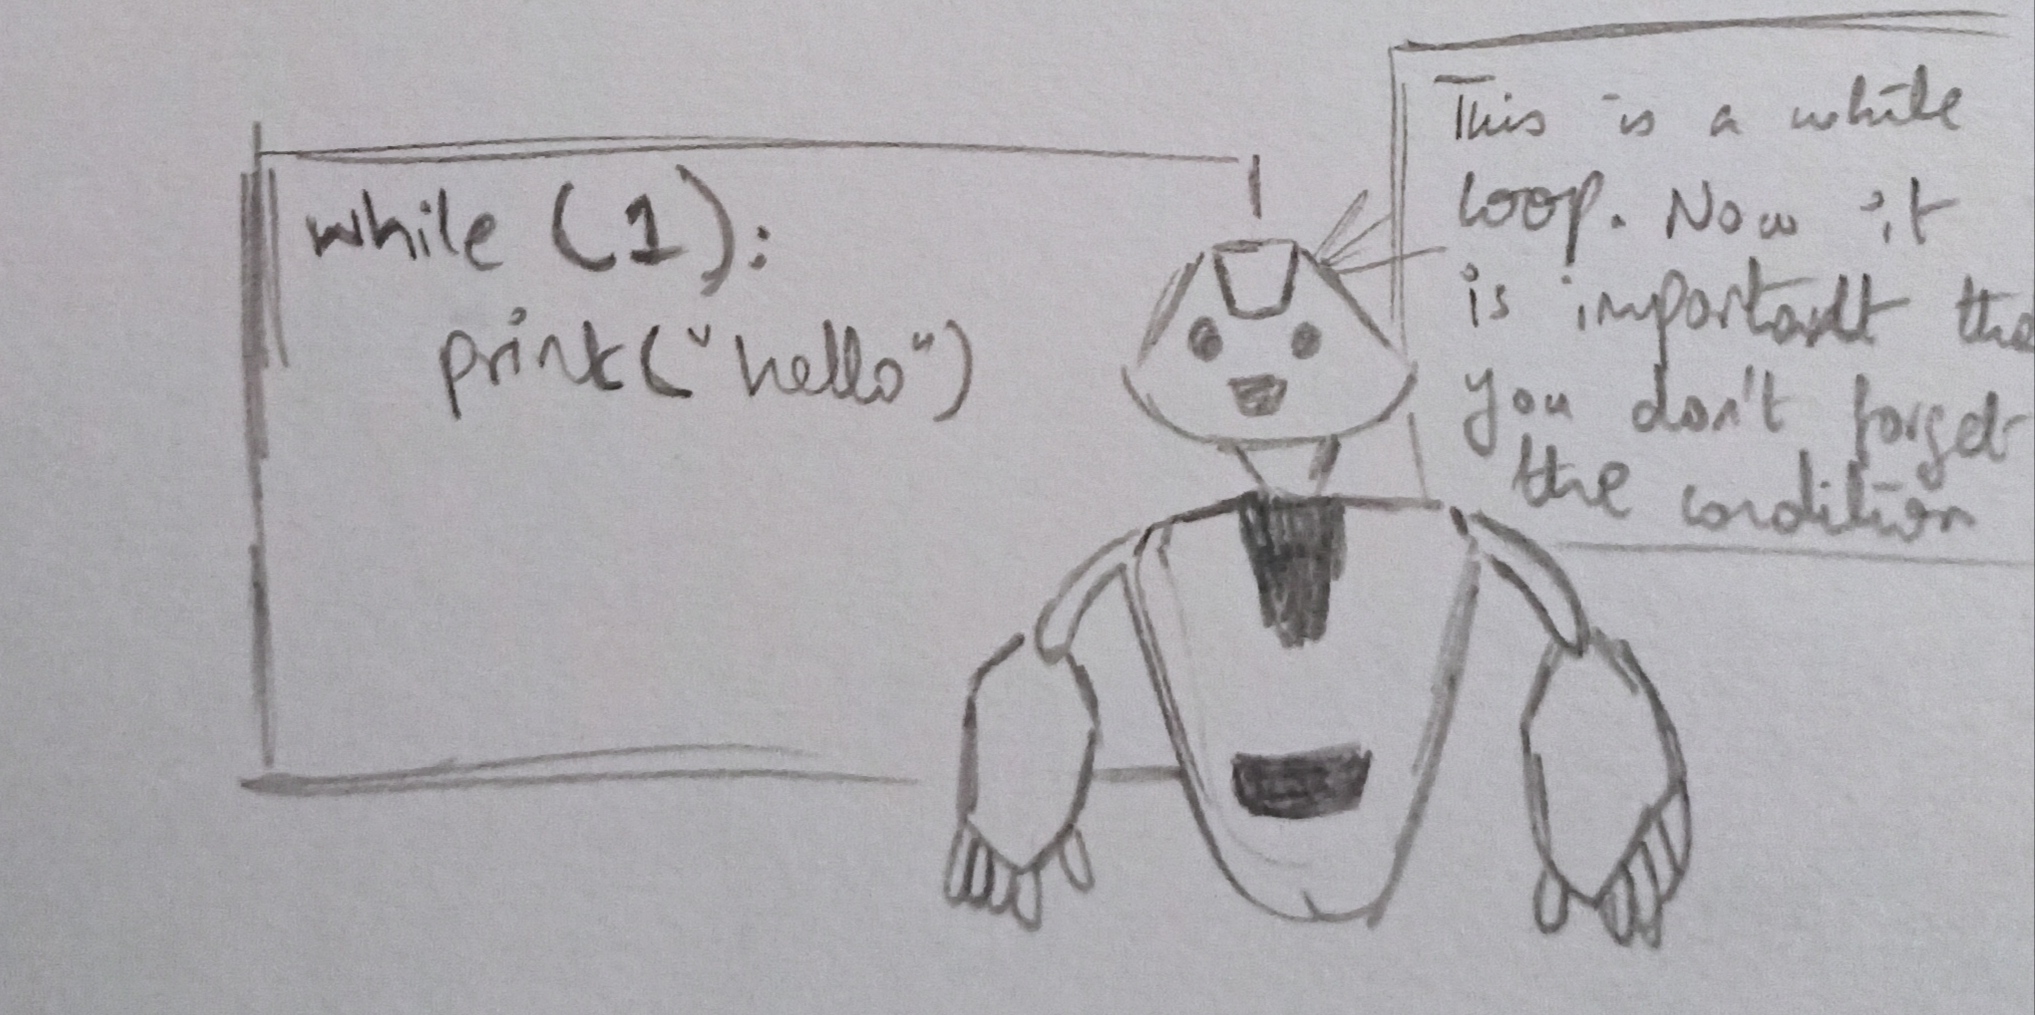 while (1):
print("hello")
This is a while
loop. Now it
is important tha
you don't forget
the condition